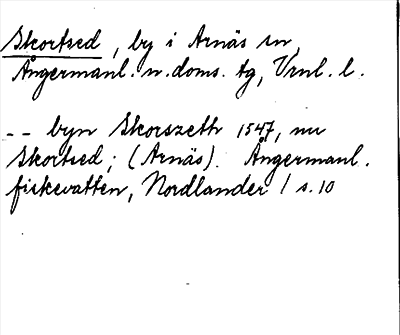 Skortsed, by i Arnäs sn,
Ångermanl. n. doms. tg, Vrnl. l.
-- byn Skorszeth 1547, nu
Skortsed; (Arnäs). Ångermanl.
fiskevatten, Nordlander / s. 10